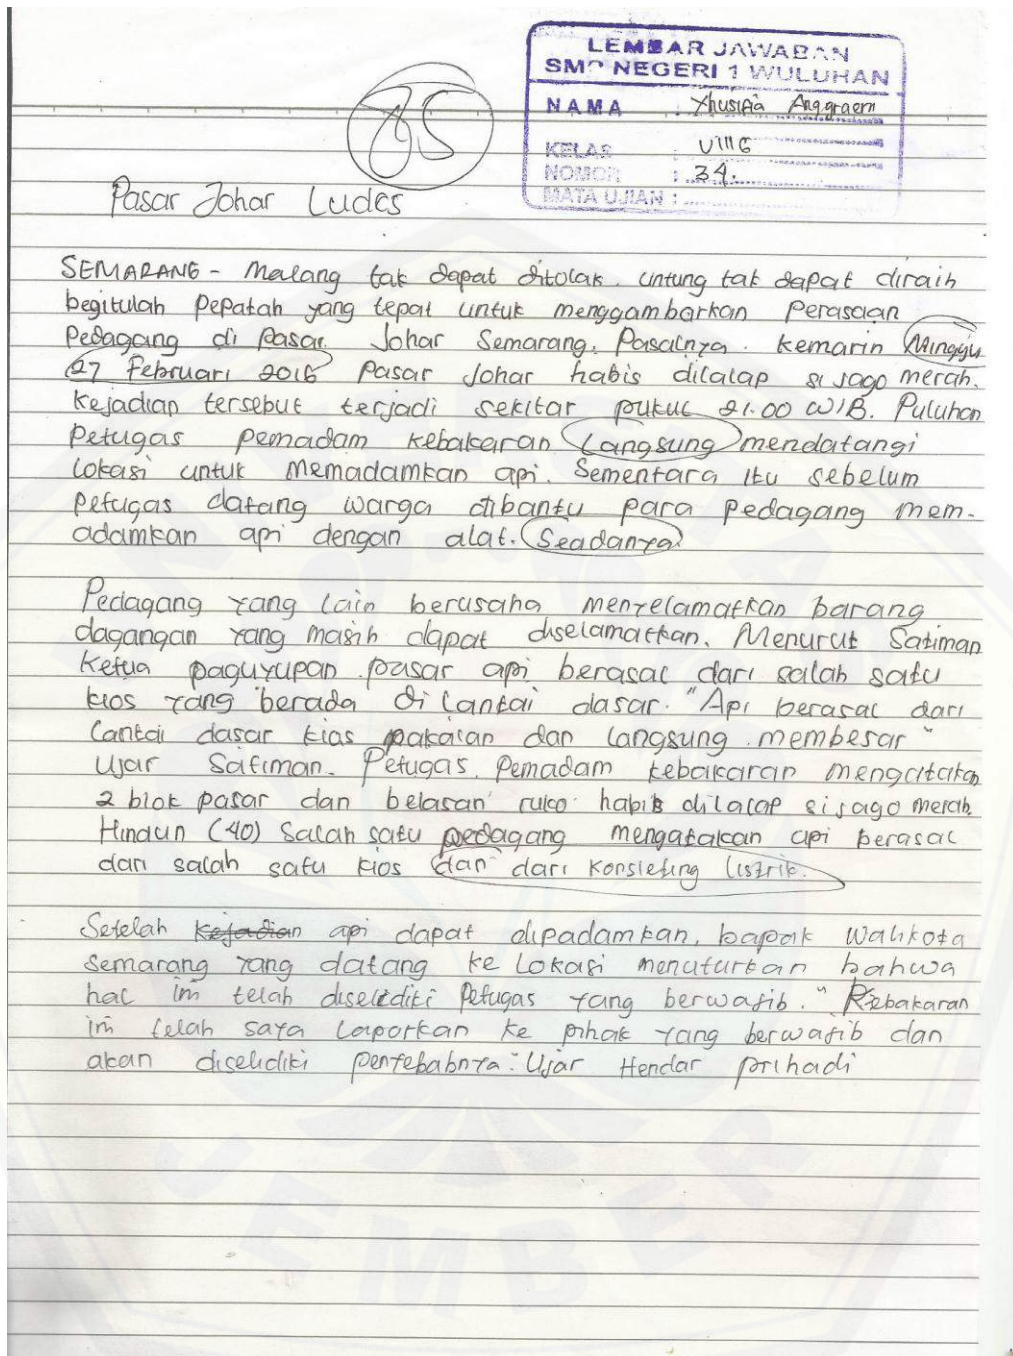 LEMBAR JAWABAN
SMP NEGERI 1 WULUHAN
NAMA : Yhusifia Anggraeni
KELAS : VIIIG
NOMOR : 34.
MATA UJIAN :
85
Pasar Johar Ludes
SEMARANG - Malang tak dapat ditolak. untung tak dapat diraih
begitulah pepatah yang tepat untuk menggambarkan Perasaan
Pedagang di Pasar Johar Semarang. Pasalnya. kemarin Minggu
27 Februari 2016 Pasar Johar habis dilalap si jago merah.
Kejadian tersebut terjadi sekitar pukul 21.00 WIB. Puluhan
Petugas pemadam kebakaran Langsung mendatangi
Lokasi untuk Memadamkan api. Sementara Itu sebelum
Petugas datang warga dibantu para pedagang mem-
adamkan api dengan alat. Seadanya
Pedagang yang lain berusaha menyelamatkan barang
dagangan yang masih dapat diselamatkan. Menurut Satiman
Ketua paguyupan pasar api berasal dari salah satu
kios yang berada di Lantai dasar. "Api berasal dari
Lantai dasar kias pakaian dan langsung membesar"
Ujar Satiman. Petugas Pemadam kebakaran mengatakan
2 blok pasar dan belasan ruko habis dilalap si jago merah.
Hindun (40) Salah satu pedagang mengatakan api berasal
dari salah satu kios dan dari Konsleting listrik.
Setelah Kejadian api dapat dipadamkan, bapak Walikota
Semarang yang datang ke Lokasi menuturkan bahwa
hal ini telah diselidiki Petugas yang berwajib. "Kebakaran
ini telah saya Laporkan ke pihak yang berwajib dan
akan diselidiki penyebabnya" Ujar Hendar prihadi
JEMBER